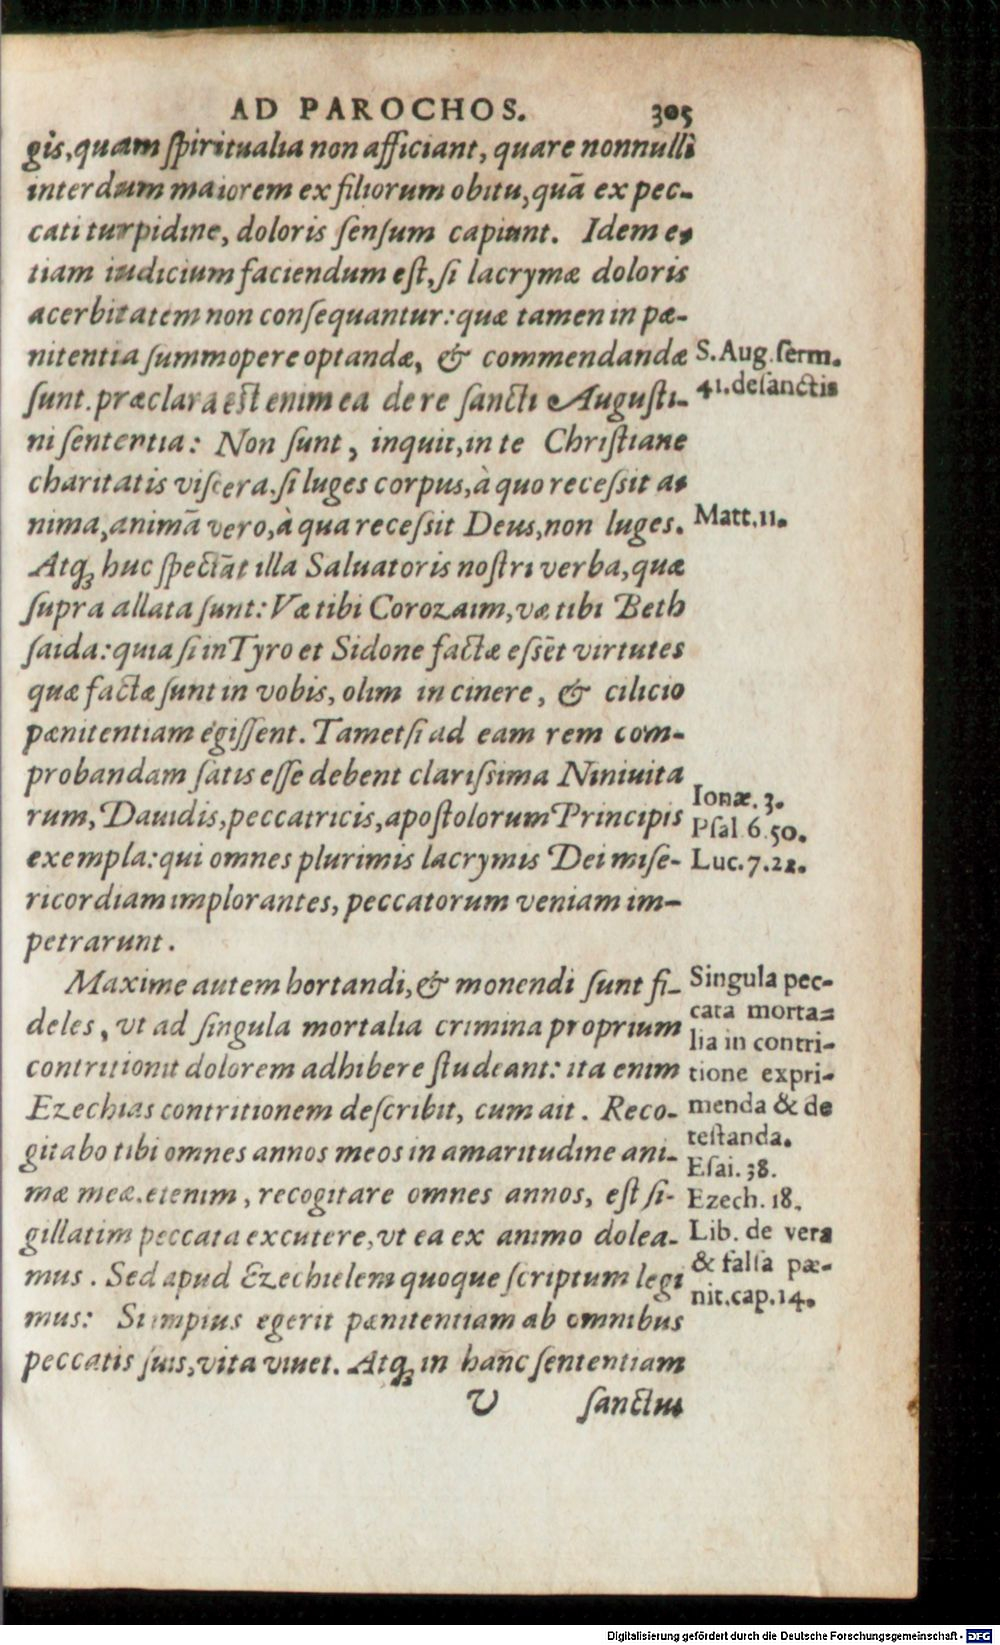 AD PAROCHOS. 305
gis, quam ſpiritualia non afficiant, quare nonnulli
interdum maiorem ex filiorum obitu, quā ex pec-
cati turpidine, doloris ſenſum capiunt. Idem e-
tiam iudicium faciendum eſt, ſi lacrymæ doloris
acerbitatem non conſequantur: quæ tamen in pæ-
nitentia ſummopere optandæ, & commendandæ
ſunt. præclara eſt enim ea de re ſancti Auguſti-
ni ſententia: Non ſunt, inquit, in te Chriſtiane
charitatis viſcera, ſi luges corpus, à quo receſsit a-
nima, animā vero, à qua receſsit Deus, non luges.
Atq; huc ſpectāt illa Saluatoris noſtri verba, quæ
ſupra allata ſunt: Væ tibi Corozaim, væ tibi Beth
ſaida: quia ſi in Tyro et Sidone factæ eſsēt virtutes
quæ factæ ſunt in vobis, olim in cinere, & cilicio
pænitentiam egiſſent. Tametſi ad eam rem com-
probandam ſatis eſſe debent clariſsima Niniuita
rum, Dauidis, peccatricis, apoſtolorum Principis
exempla: qui omnes plurimis lacrymis Dei miſe-
ricordiam implorantes, peccatorum veniam im-
petrarunt.
Maxime autem hortandi, & monendi ſunt fi-
deles, vt ad ſingula mortalia crimina proprium
contritionit dolorem adhibere ſtudeant: ita enim
Ezechias contritionem deſcribit, cum ait. Reco-
gitabo tibi omnes annos meos in amaritudine ani-
mæ meæ. etenim, recogitare omnes annos, eſt ſi-
gillatim peccata excutere, vt ea ex animo dolea-
mus. Sed apud Ezechielem quoque ſcriptum legi
mus: Si impius egerit pænitentiam ab omnibus
peccatis ſuis, vita viuet. Atq; in hanc ſententiam
V ſanctus
S. Aug. ſerm.
41. de ſanctis
Matt. 11.
Ionæ. 3.
Pſal 6. 50.
Luc. 7. 22.
Singula pec-
cata morta=
lia in contri-
tione expri-
menda & de
teſtanda.
Eſai. 38.
Ezech. 18.
Lib. de vera
& falſa pæ-
nit. cap. 14.
Digitalisierung gefördert durch die Deutsche Forschungsgemeinschaft - DFG